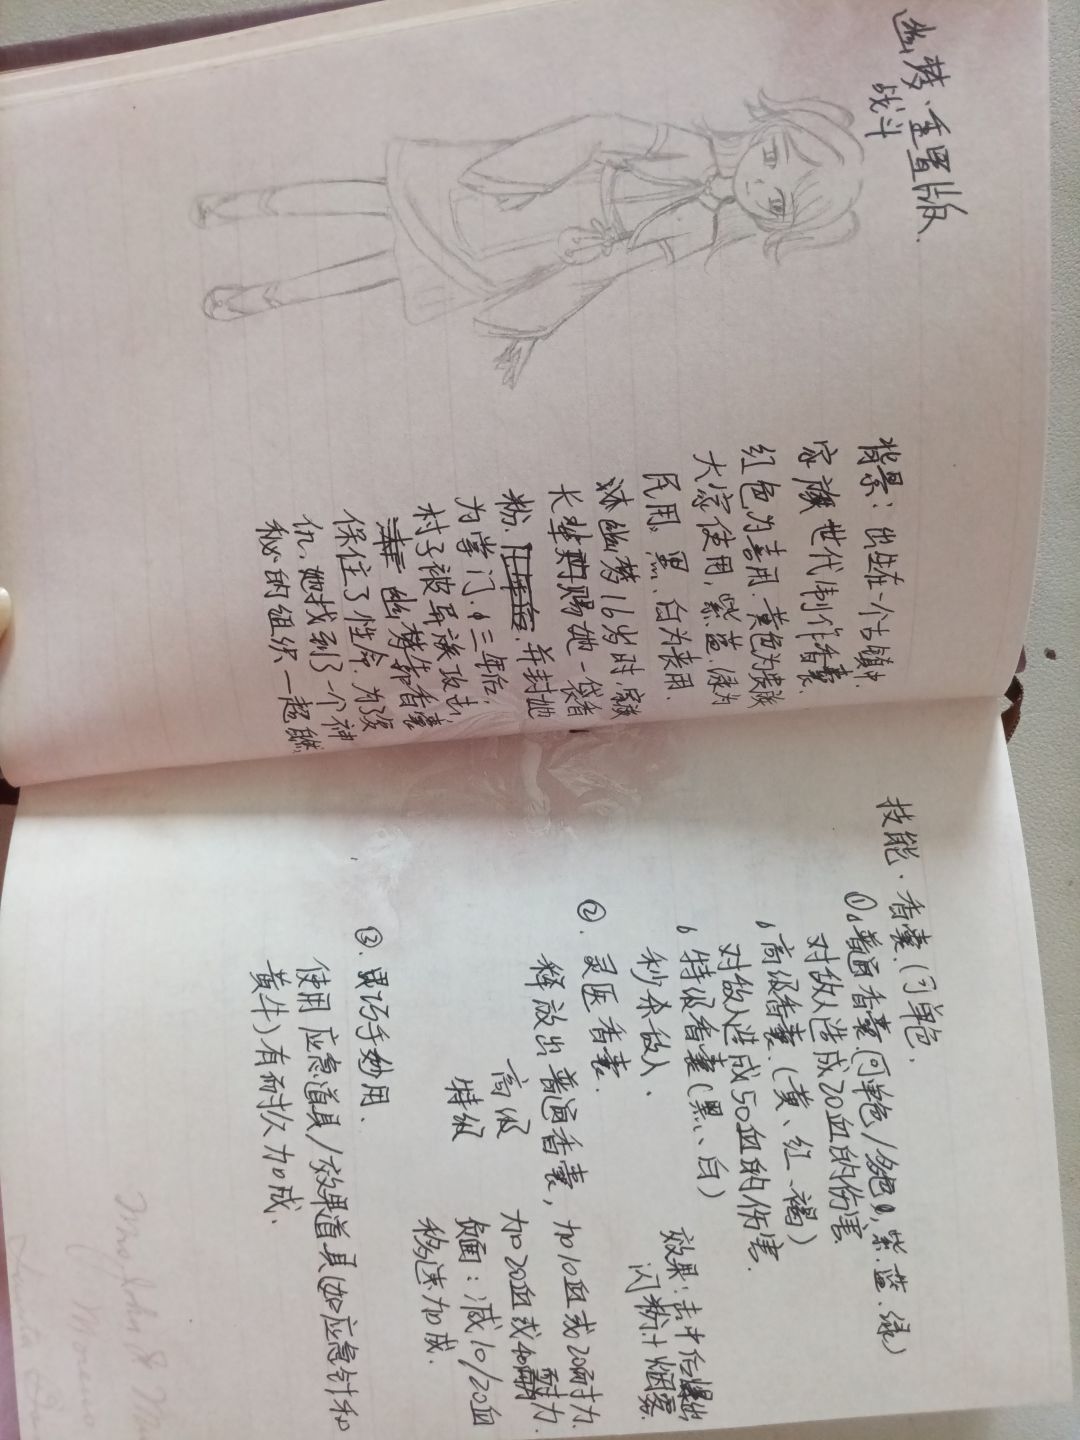 幽梦、重置版.
战斗
背景：出生在一个古镇中.
家族世代制作香囊.
红色为喜用.黄色为贵族
大家使用,紫.蓝.绿为
民用。黑、白为丧用.
沐幽梦16岁时,家族
长辈赐她一袋香
粉.并封她
为掌门.三年后,
村子被异族攻击,
幽梦靠香囊
保住了性命.为复
仇,她找到了一个神
秘的组织—超能.
技能.香囊.(可单色.
①普通香囊.(可单色/多色,紫.蓝.绿)
对敌人造成20血的伤害.
高级香囊.(黄、红、褐)
对敌人造成50血的伤害.
特级香囊(黑、白)
秒杀敌人.
效果:击中后爆出
闪粉+烟雾.
②.灵医香囊.
释放出普通香囊,加10血或20耐力.
高级 加20血或40耐力.
特级 负面:减10/20血
移速加成.
③.灵巧手妙用.
使用应急道具/效果道具(如应急针和
黄牛)有耐久加成.